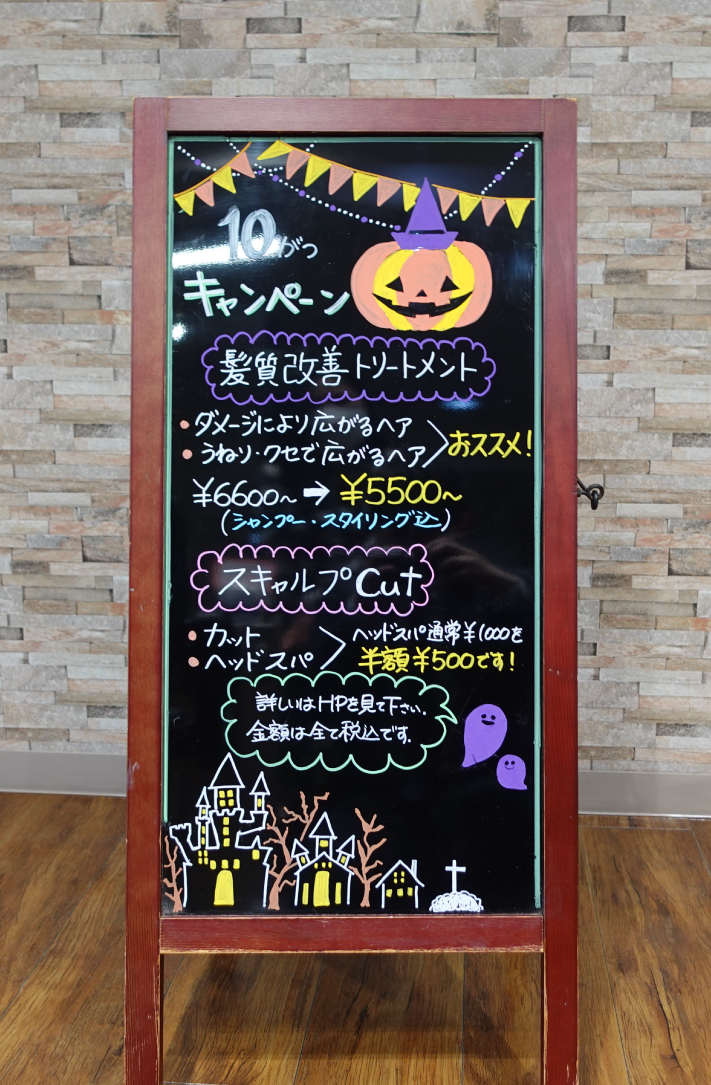 10がつ
キャンペーン
髪質改善トリートメント
・ダメージにより広がるヘア
・うねり・クセで広がるヘア
おススメ!
¥6600~ → ¥5500~
(シャンプー・スタイリング込)
スキャルプCut
・カット
・ヘッドスパ
ヘッドスパ通常¥1000を
半額¥500です!
詳しいはHPを見て下さい.
金額は全て税込です.